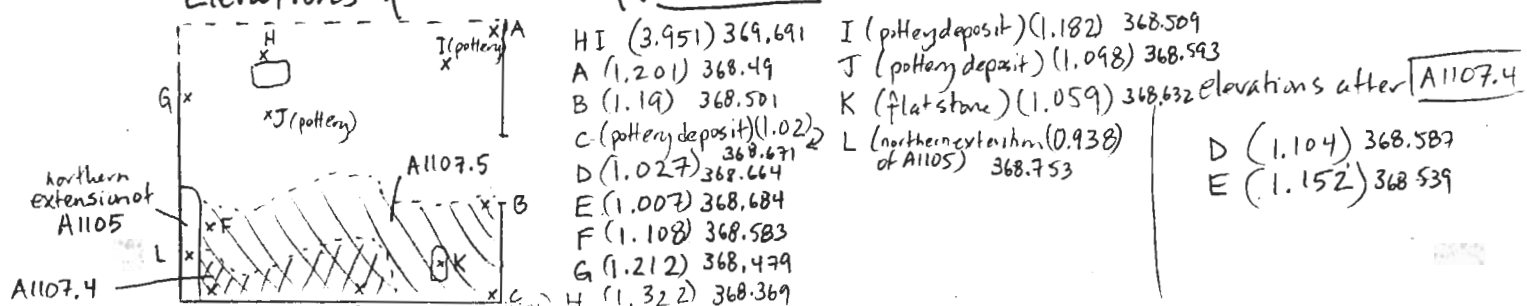 Elevations
H
I (pottery)
A
G
J (pottery)
northern
extension of
A1105
A1107.5
F
B
L
K
A1107.4
C
HI (3.951) 369,691
A (1.201) 368.49
B (1.19) 368.501
C (pottery deposit)(1.02)
368.671
D (1.027) 368.664
E (1.007) 368,684
F (1.108) 368.583
G (1.212) 368,479
H (1.322) 368.369
I (pottery deposit)(1.182) 368.509
J (pottery deposit) (1.098) 368.593
K (flat stone) (1.059) 368,632
L (northern extension (0.938)
of A1105) 368.753
elevations after A1107.4
D (1.104) 368.587
E (1.152) 368.539